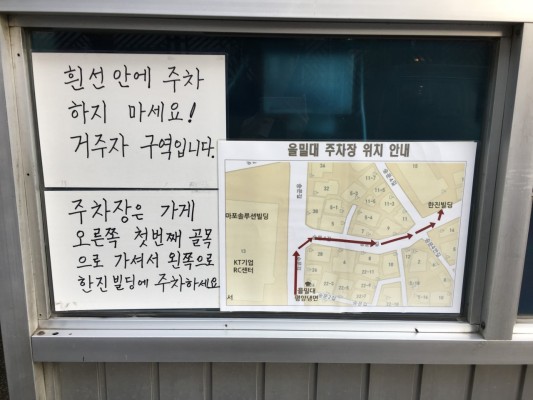 흰선 안에 주차
하지 마세요!
거주자 구역입니다.
주차장은 가게
오른쪽 첫번째 골목
으로 가셔서 왼쪽으로
한진빌딩에 주차하세요
을밀대 주차장 위치 안내
한진빌딩
마포솔루션빌딩
KT기업
RC센터
을밀대
평양냉면
서